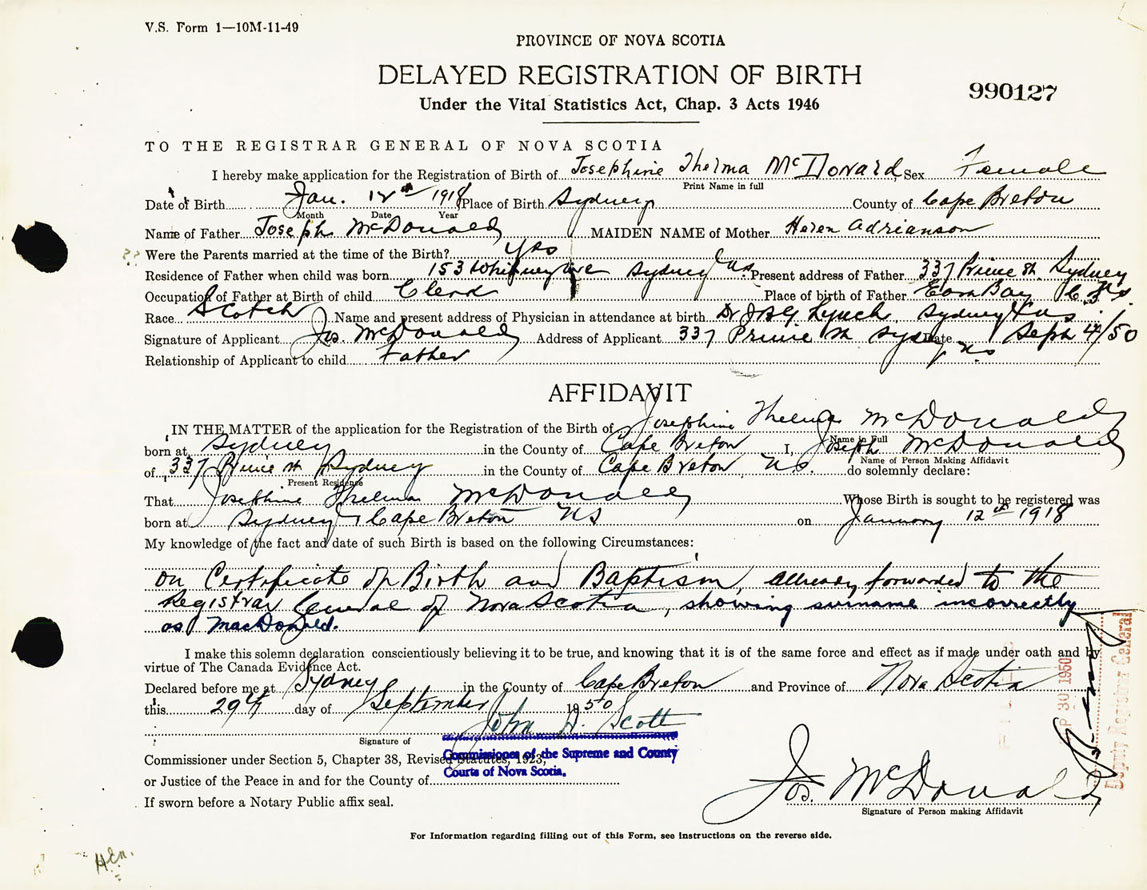 V.S. Form 1—10M-11-49
PROVINCE OF NOVA SCOTIA
DELAYED REGISTRATION OF BIRTH
990127
Under the Vital Statistics Act, Chap. 3 Acts 1946
TO THE REGISTRAR GENERAL OF NOVA SCOTIA
I hereby make application for the Registration of Birth of Josephine Thelma McDonald Sex Female
Print Name in full
Date of Birth Jan. 12th 1918 Place of Birth Sydney County of Cape Breton
Month Date Year
Name of Father Joseph McDonald MAIDEN NAME of Mother Helen Adrianson
?? Were the Parents married at the time of the Birth? Yes
Residence of Father when child was born 153 Whitney Ave Sydney NS Present address of Father 337 Prince St. Sydney
Occupation of Father at Birth of child Clerk Place of birth of Father East Bay C.B.
Race Scotch Name and present address of Physician in attendance at birth Dr Lynch, Sydney NS
Signature of Applicant Jos. McDonald Address of Applicant 337 Prince St Sydney NS Date Sept /50
Relationship of Applicant to child Father
AFFIDAVIT
IN THE MATTER of the application for the Registration of the Birth of Josephine Thelma McDonald
Name in Full
born at Sydney in the County of Cape Breton I, Joseph McDonald
Name of Person Making Affidavit
of 337 Prince St Sydney in the County of Cape Breton NS. do solemnly declare:
Present Residence
That Josephine Thelma McDonald Whose Birth is sought to be registered was
born at Sydney Cape Breton NS on January 12th 1918
My knowledge of the fact and date of such Birth is based on the following Circumstances:
on Certificate of Birth and Baptism already forwarded to the
Registrar General of Nova Scotia, showing surname incorrectly
as MacDonald.
I make this solemn declaration conscientiously believing it to be true, and knowing that it is of the same force and effect as if made under oath and by
virtue of The Canada Evidence Act.
Declared before me at Sydney in the County of Cape Breton and Province of Nova Scotia
this 29th day of September 1950
John D. Scott
Signature of
Commissioner under Section 5, Chapter 38, Revised Statutes, 1923,
Commissioner of the Supreme and County
Courts of Nova Scotia.
or Justice of the Peace in and for the County of
If sworn before a Notary Public affix seal.
Jos. McDonald
Signature of Person making Affidavit
30 1950
Deputy Registrar General
For Information regarding filling out of this Form, see instructions on the reverse side.